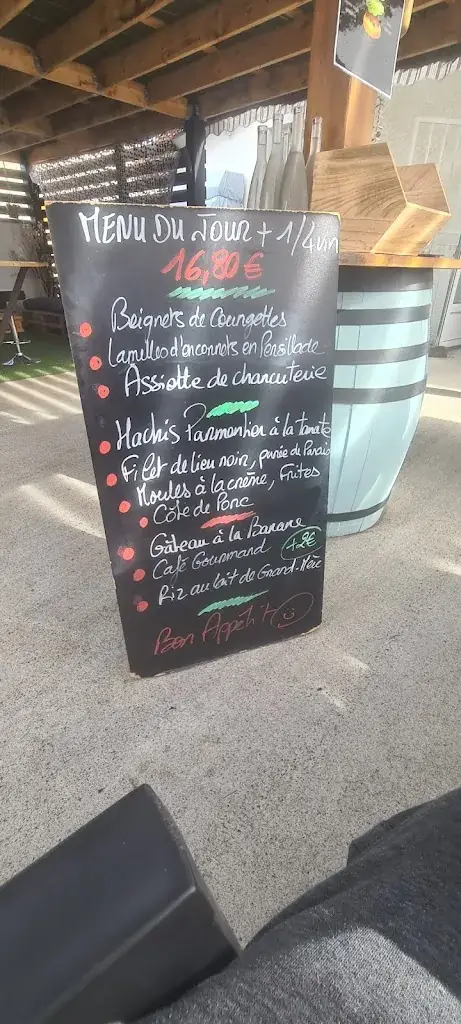 MENU DU JOUR + 1/4 vin
16,80 €
Beignets de Courgettes
Lamelles d'encornets en Persillade
Assiette de charcuterie
Hachis Parmentier à la tomate
Filet de lieu noir, purée de Panais
Moules à la crème, Frites
Côte de Porc
Gâteau à la Banane
Café Gourmand +2€
Riz au lait de Grand-Mère
Bon Appétit